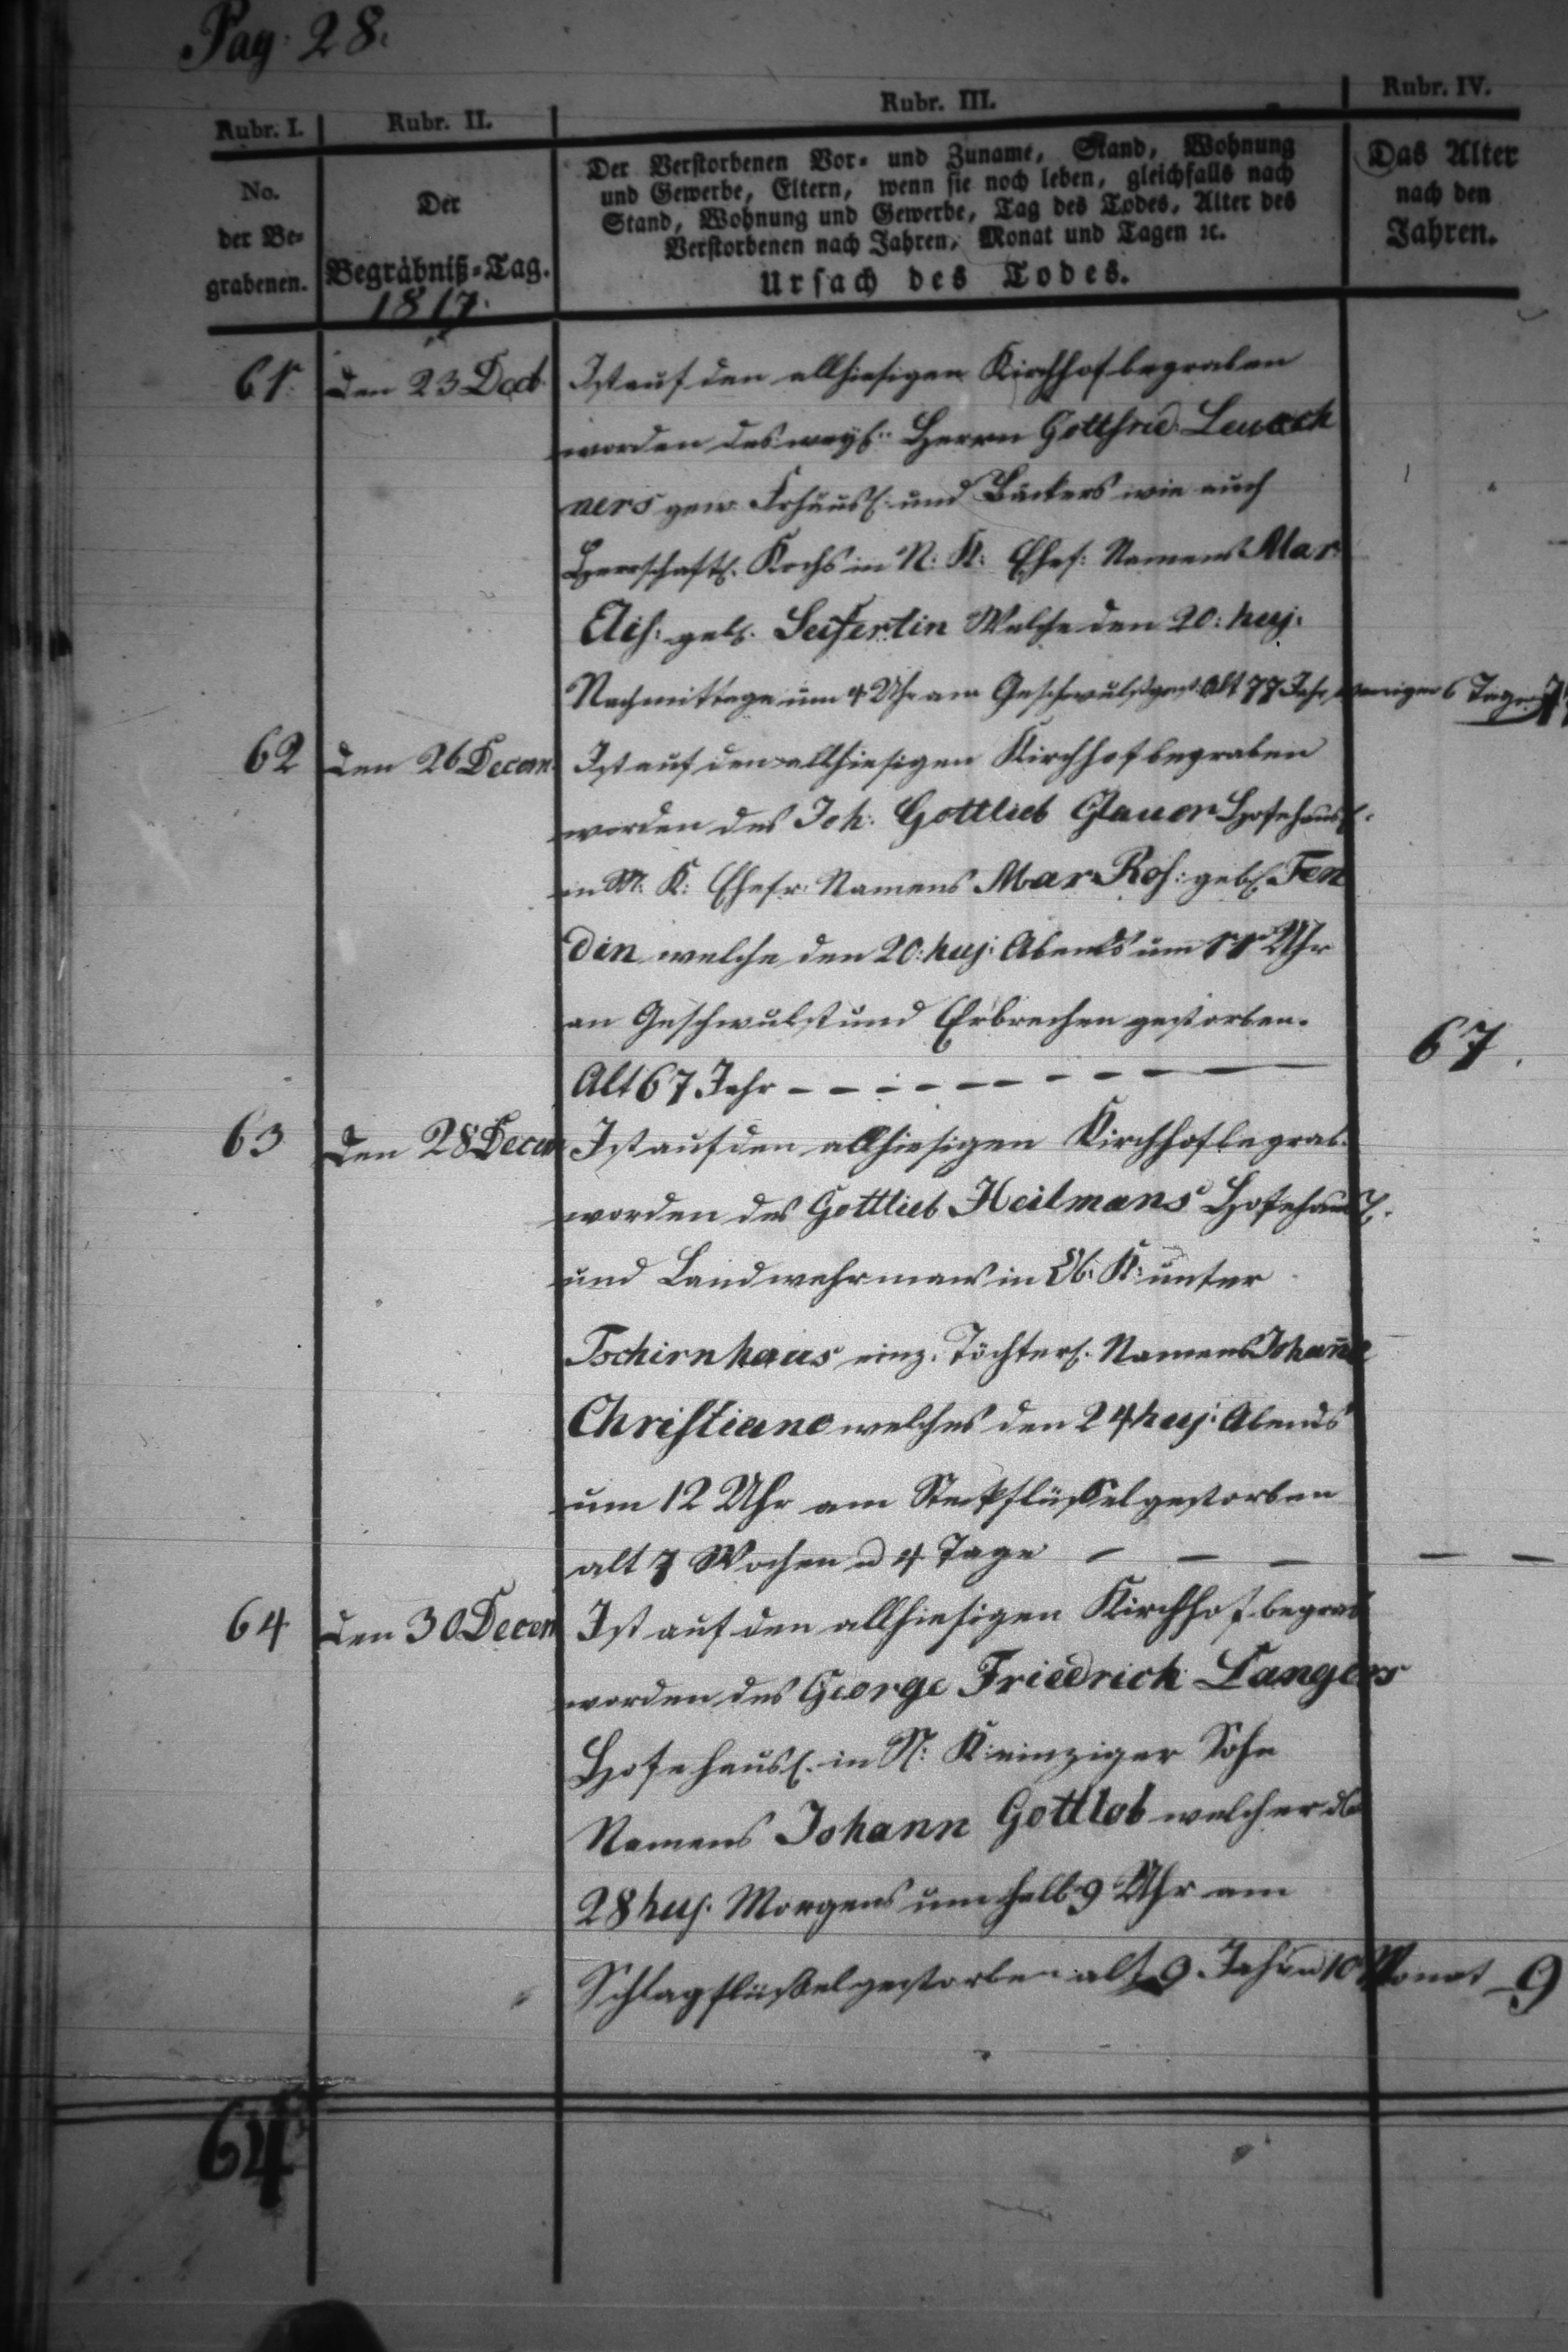 Pag: 28.
Rubr. I. Rubr. II. Rubr. III. Rubr. IV.
No. der Be= grabenen.
Der Begräbniß=Tag.
1817.
Der Verstorbenen Vor= und Zuname, Stand, Wohnung
und Gewerbe, Eltern, wenn sie noch leben, gleichfalls nach
Stand, Wohnung und Gewerbe, Tag des Todes, Alter des
Verstorbenen nach Jahren, Monat und Tagen ꝛc.
Ursach des Todes.
Das Alter
nach den
Jahren.
61. den 23 Dec Ist auf den allhiesigen Kirchhof begraben
worden des weyl: Herrn Gottfried
ners gew. und Bäckers wie auch
Herrschaftl. Kochs in N: K: Ehef: Namens Mar:
gebl. Seifertin Welche den 20: huj:
Nachmittage um 4 Uhr am Geschwulst gest. Alt 77 Jahr weniger 6 Tage
62 den 26 Decem Ist auf den allhiesigen Kirchhof begraben
worden des Joh: Gottlieb Glauer Hofehausl:
in M: K: Ehefr: Namens Mar: Ros: gebl. Fen
din welche den 20: huj: Abends um 11 Uhr
an Geschwulst und Erbrechen gestorben.
Alt 67 Jahr - - - - - - - - - 67.
63 den 28 Decem Ist auf den allhiesigen Kirchhof begrab.
worden des Gottlieb Heilmans Hofehausl.
und Landwehrmans in Ob: K: unter
Tschirnhaus einz. Töchterl. Namens Johanne
Christiane welches den 24 huj: Abends
um 12 Uhr am Steckflüssel gestorben
alt 7 Wochen u 4 Tage - - - - -
64 den 30 Decem Ist auf den allhiesigen Kirchhof begrab
worden des George Friedrich Langers
Hofehausl. in N: K: einziger Sohn
Namens Johann Gottlob welcher d
28 huj. Morgens um halb 9 Uhr am
Schlagflüssel gestorben alt 9 Jahr u 10 Monat - 9
64